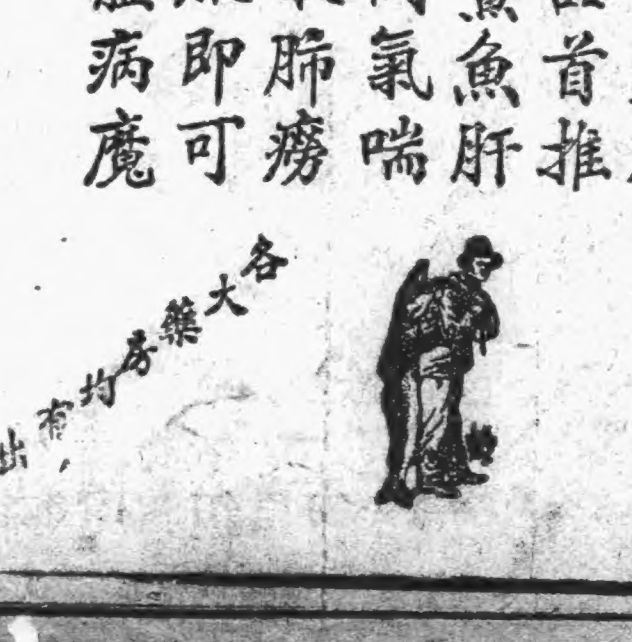 首推
魚肝
氣喘
肺癆
即可
病魔
各大藥房均有出